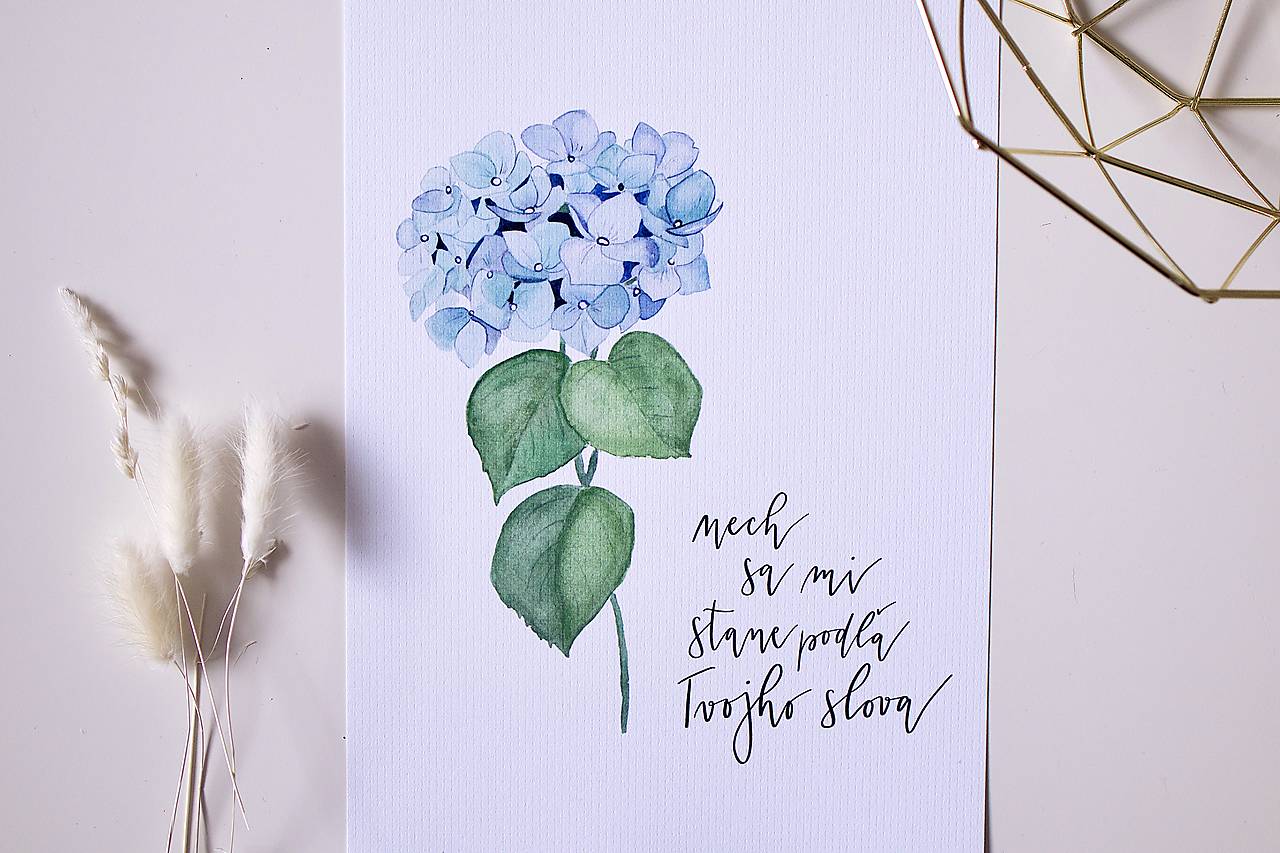 nech
sa mi
stane podľa
Tvojho slova